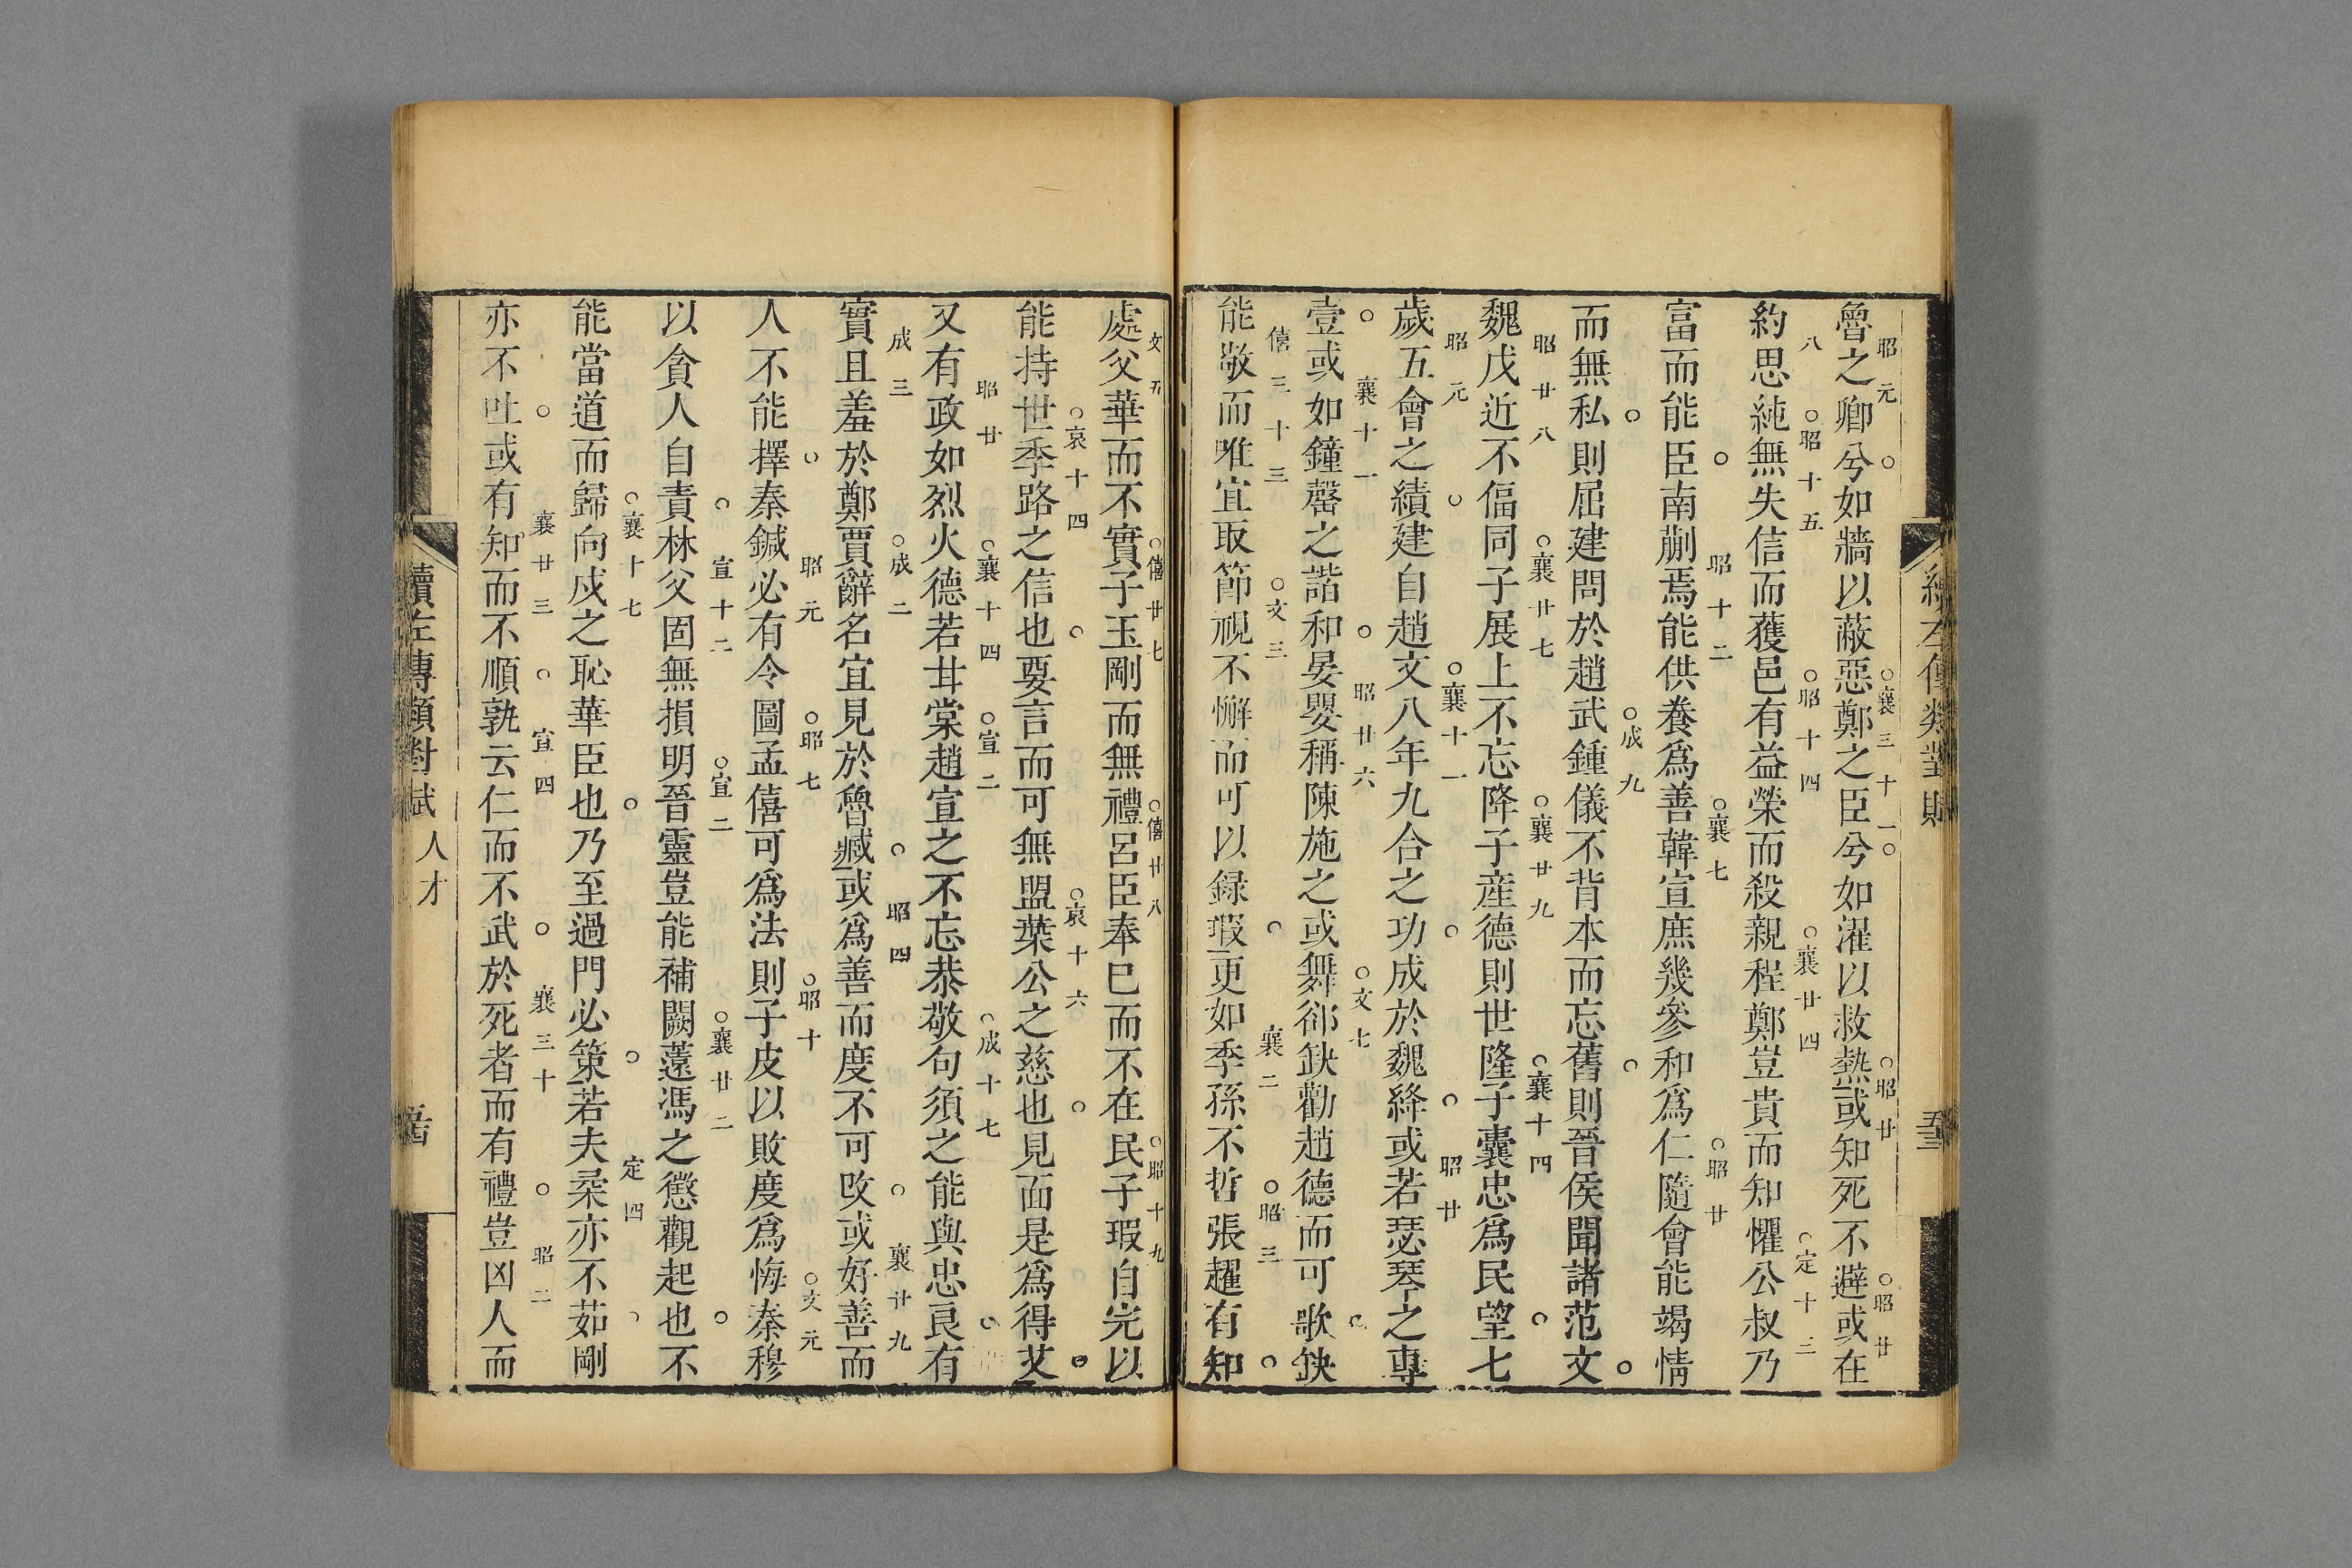 魯之卿兮如牆以蔽惡鄭之臣兮如濯以救熱或知死不避或在
昭元 襄三十一 昭廿 昭廿
約思純無失信而獲邑有益榮而殺親程鄭豈貴而知懼公叔乃
八 昭十五 昭十四 襄廿四 定十三
富而能臣南蒯焉能供養爲善韓宣庶幾參和爲仁隨會能竭情
昭十二 襄七 昭廿
而無私則屈建問於趙武鍾儀不背本而忘舊則晉侯聞諸范文
成九
魏戊近不偪同子展上不忘降子產德則世隆子囊忠爲民望七
昭廿八 襄廿七 襄廿九 襄十四
歲五會之績建自趙文八年九合之功成於魏絳或若瑟琴之專
昭元 襄十一 昭廿
壹或如鐘罄之諧和晏嬰稱陳施之或舞郤缺勸趙德而可歌缺
襄十一 昭廿六 文七
能敬而唯宜取節視不懈而可以録瑕更如季孫不哲張趯有知
僖三十三 文三 襄二 昭三
續左傳類對賦 五三
處父華而不實子玉剛而無禮呂臣奉已而不在民子瑕自完以
文五 僖廿七 僖廿八 昭十九
能持世季路之信也要言而可無盟葉公之慈也見面是爲得艾
哀十四 哀十六
又有政如烈火德若甘棠趙宣之不忘恭敬句須之能與忠良有
昭廿 襄十四 宣二 成十七
實且羞於鄭賈辭名宜見於魯臧或爲善而度不可攺或好善而
成三 成二 昭四 襄廿九
人不能擇秦鍼必有令圖孟僖可爲法則子皮以敗度爲悔秦穆
昭元 昭七 昭十 文元
以貪人自責林父固無損明晉靈豈能補闕薳馮之懲觀起也不
宣十二 宣二 襄廿二
能當道而歸向戍之恥華臣也乃至過門必策若夫柔亦不茹剛
襄十七 定四
亦不吐或有知而不順孰云仁而不武於死者而有禮豈凶人而
襄廿三 宣四 襄三十 昭二
續左傳類對賦 人才